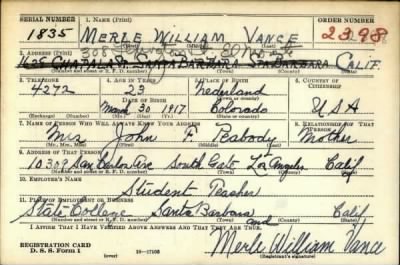 SERIAL NUMBER 1. NAME (Print) ORDER NUMBER
1835 MERLE WILLIAM VANCE 2398
308
2. ADDRESS (Print)
1625 CHAPALA ST. SANTA BARBARA STA BARBARA CALIF.
3. TELEPHONE 4. AGE IN YEARS 5. PLACE OF BIRTH 6. COUNTRY OF CITIZENSHIP
4272 23 Nederland
DATE OF BIRTH (Town or county)
Mar 30 1917 Colorado USA
(Exchange) (Number) (Mo.) (Day) (Yr.) (State or country)
7. NAME OF PERSON WHO WILL ALWAYS KNOW YOUR ADDRESS 8. RELATIONSHIP OF THAT PERSON
Mrs John F. Peabody Mother
(Mr., Mrs., Miss) (First) (Middle) (Last)
9. ADDRESS OF THAT PERSON
10309 San Carlos Ave South Gate Los Angeles Calif
(Number and street or R. F. D. number) (Town) (County) (State)
10. EMPLOYER'S NAME
Student Teacher
11. PLACE OF EMPLOYMENT OR BUSINESS
State College Santa Barbara Calif
(Number and street or R. F. D. number) (Town) (County) (State)
I AFFIRM THAT I HAVE VERIFIED ABOVE ANSWERS AND THAT THEY ARE TRUE.
REGISTRATION CARD
D. S. S. Form 1 (over) 16—17105
Merle William Vance
(Registrant's signature)